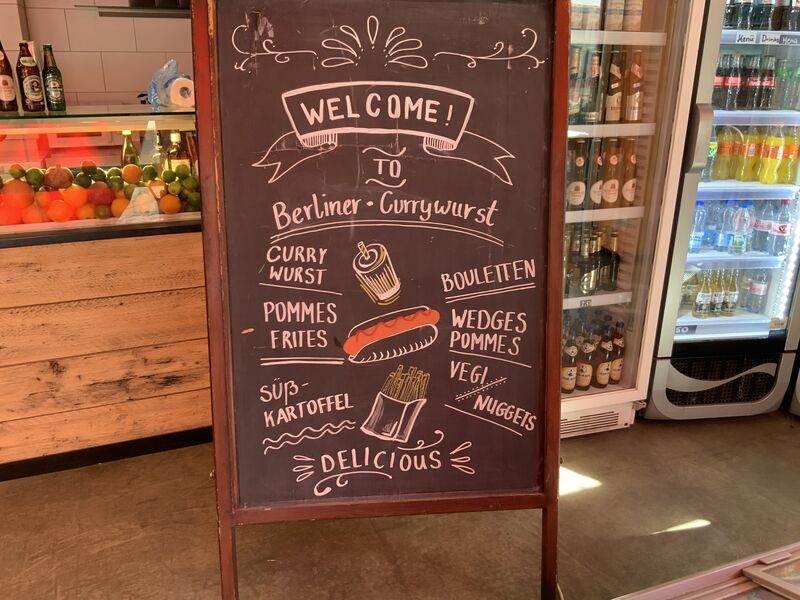 WELCOME!
TO
Berliner - Currywurst
CURRY
WURST
POMMES
FRITES
SÜß-
KARTOFFEL
BOULETTEN
WEDGES
POMMES
VEGI
NUGGETS
DELICIOUS
Menü
Menü